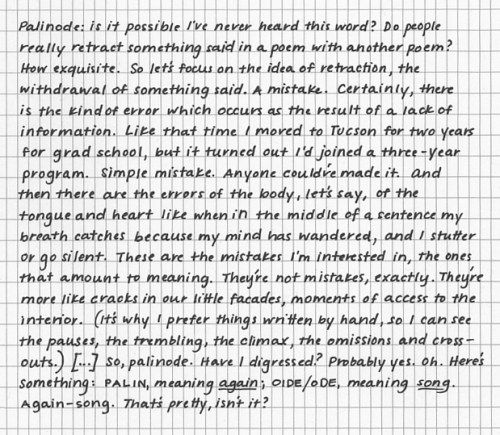 Palinode: is it possible I've never heard this word? Do people
really retract something said in a poem with another poem?
How exquisite. So let's focus on the idea of retraction, the
withdrawal of something said. A mistake. Certainly, there
is the kind of error which occurs as the result of a lack of
information. Like that time I moved to Tucson for two years
for grad school, but it turned out I'd joined a three-year
program. Simple mistake. Anyone could've made it. And
then there are the errors of the body, let's say, of the
tongue and heart like when in the middle of a sentence my
breath catches because my mind has wandered, and I stutter
or go silent. These are the mistakes I'm interested in, the ones
that amount to meaning. They're not mistakes, exactly. They're
more like cracks in our little facades, moments of access to the
interior. (It's why I prefer things written by hand, so I can see
the pauses, the trembling, the climax, the omissions and cross-
outs.) [...] So, palinode. Have I digressed? Probably yes. Oh. Here's
something: PALIN, meaning again; OIDE/ODE, meaning song.
Again-song. That's pretty, isn't it?